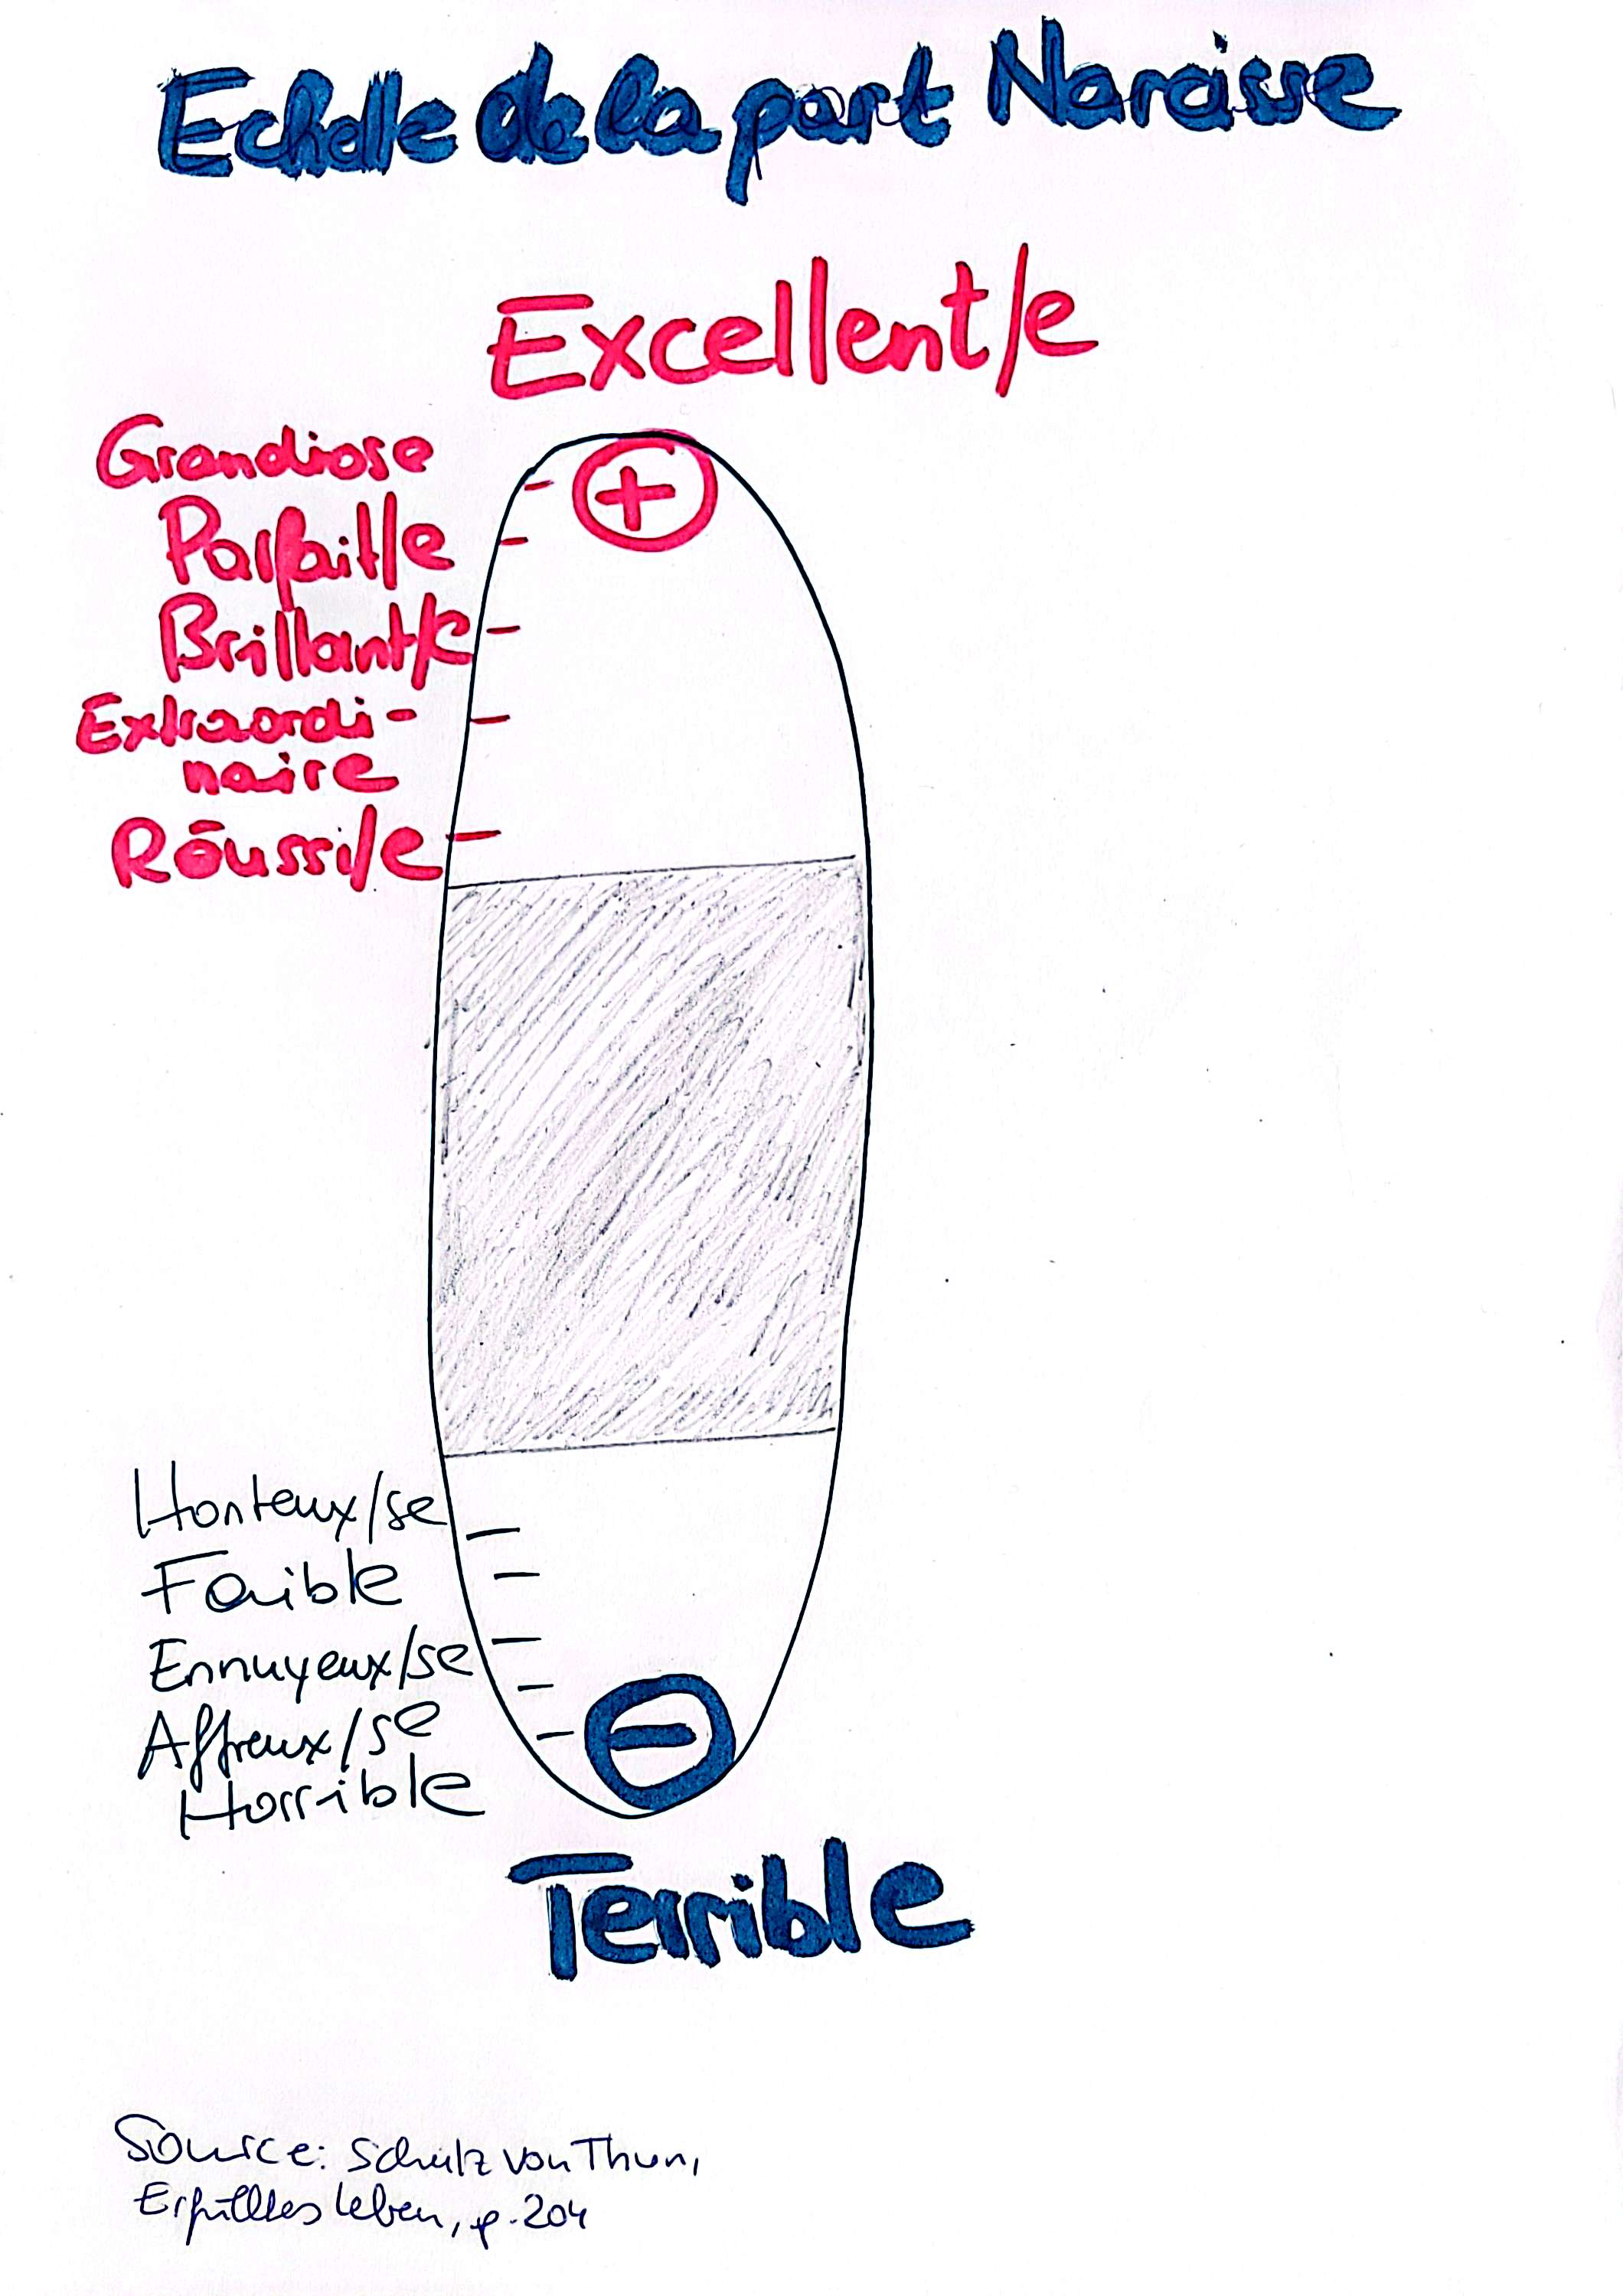 Echelle de la part Narcisse
Excellent/e
+
Grandiose
Parfait/e
Brillant/e
Extraordi-
naire
Réussi/e
Honteux/se
Faible
Ennuyeux/se
Affreux/se
Horrible
−
Terrible
Source: Schulz von Thun,
Erfülltes Leben, p. 204